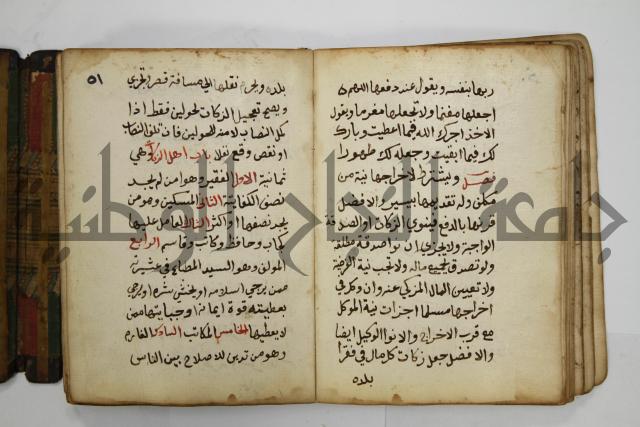 ربها بنفسه ويقول عند دفعها اللهم
اجعلها مغنما ولا تجعلها مغرما ويقول
الاخذ اجرك الله فيما اعطيت وبارك
لك فيما ابقيت وجعله لك طهورا
فصل ويشترط لاخراجها نية من
مكلف وله تقديمها بيسير والافضل
قرنها بالدفع فينوي الزكات او الصدقة
الواجبة ولا يجزي ان نوا صدقة مطلقة
ولو تصدق بجميع ماله ولا تجب نية الفرضية
ولا تعيين المال المزكى عنه وان وكل في
اخراجها مسلما اجزات نية الموكل
مع قرب الاخراج والا نوا الوكيل ايضا
والافضل جعل زكات كل مال في فقرا
بلده
٥١
بلده ويحرم نقلها الى مسافة قصر وتجزي
ويصح تعجيل الزكات لحولين فقط اذا
كمل النصاب لا منه للحولين فان تلف النصاب
او نقص وقع نفلا باب اهل الزكاة وهي
ثمانية الاول الفقير وهو من لم يجد
نصف الكفاية الثاني المسكين وهو من
يجد نصفها او اكثر الثالث العامل عليها
كجاب وحافظ وكاتب وقاسم الرابع
المولف وهو السيد المطاع في عشيرته
ممن يرجى اسلامه او يخشى شره او يرجى
بعطيته قوة ايمانه او جبايتها ممن
لا يعطيها الخامس المكاتب السادس الغارم
وهو من تدين للاصلاح بين الناس
جامعة النجاح الوطنية